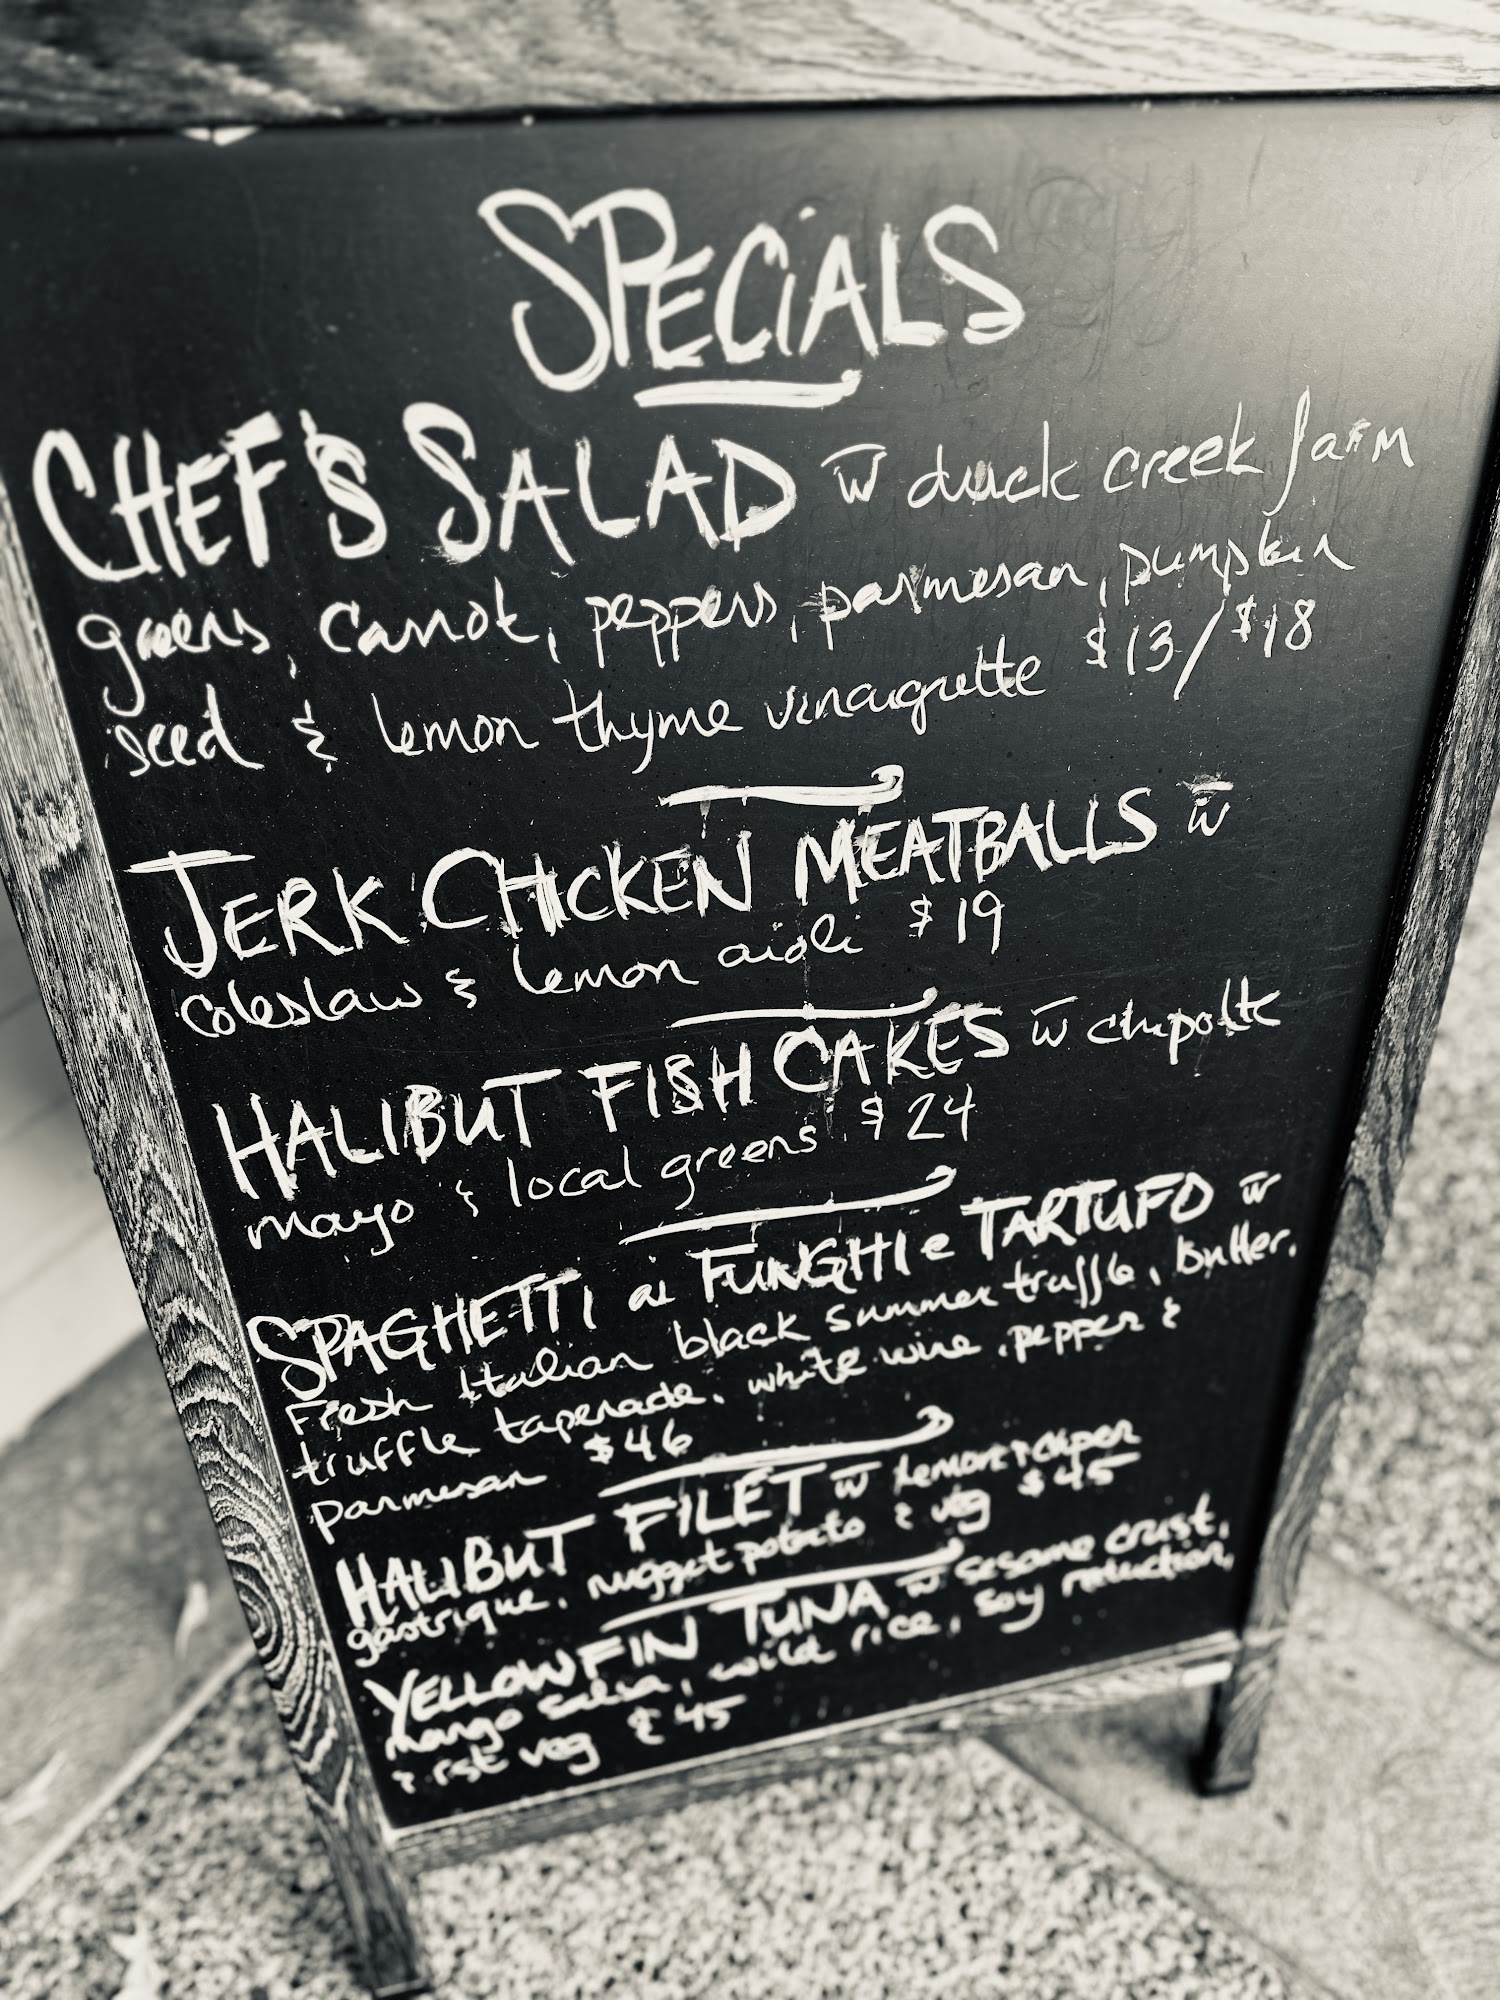 SPECiALS
CHEF'S SALAD w̄ duck creek farm
greens, carrot, peppers, parmesan, pumpkin
seed & lemon thyme vinaigrette $13/$18
JERK CHICKEN MEATBALLS w̄
coleslaw & lemon aioli $19
HALIBUT FISH CAKES w̄ chipotle
mayo & local greens $24
SPAGHETTI ai FUNGHI e TARTUFO w̄
Fresh Italian black summer truffle, butter,
truffle tapenade, white wine, pepper &
parmesan $46
HALIBUT FILET w̄ lemon & caper
gastrique, nugget potato & veg $45
YELLOWFIN TUNA w̄ sesame crust,
mango salsa, wild rice, soy reduction,
& rst veg $45